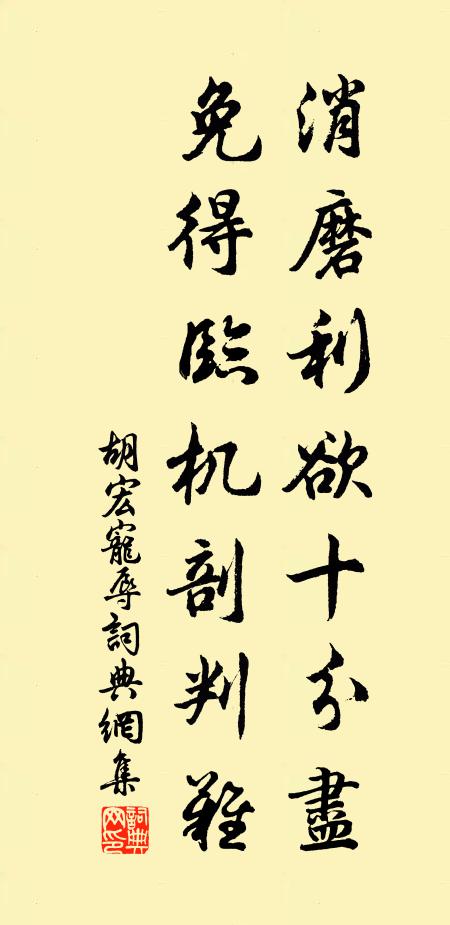 消磨利欲十分盡
免得臨机剖判難
胡宏寵辱詞典網集
詞典网印